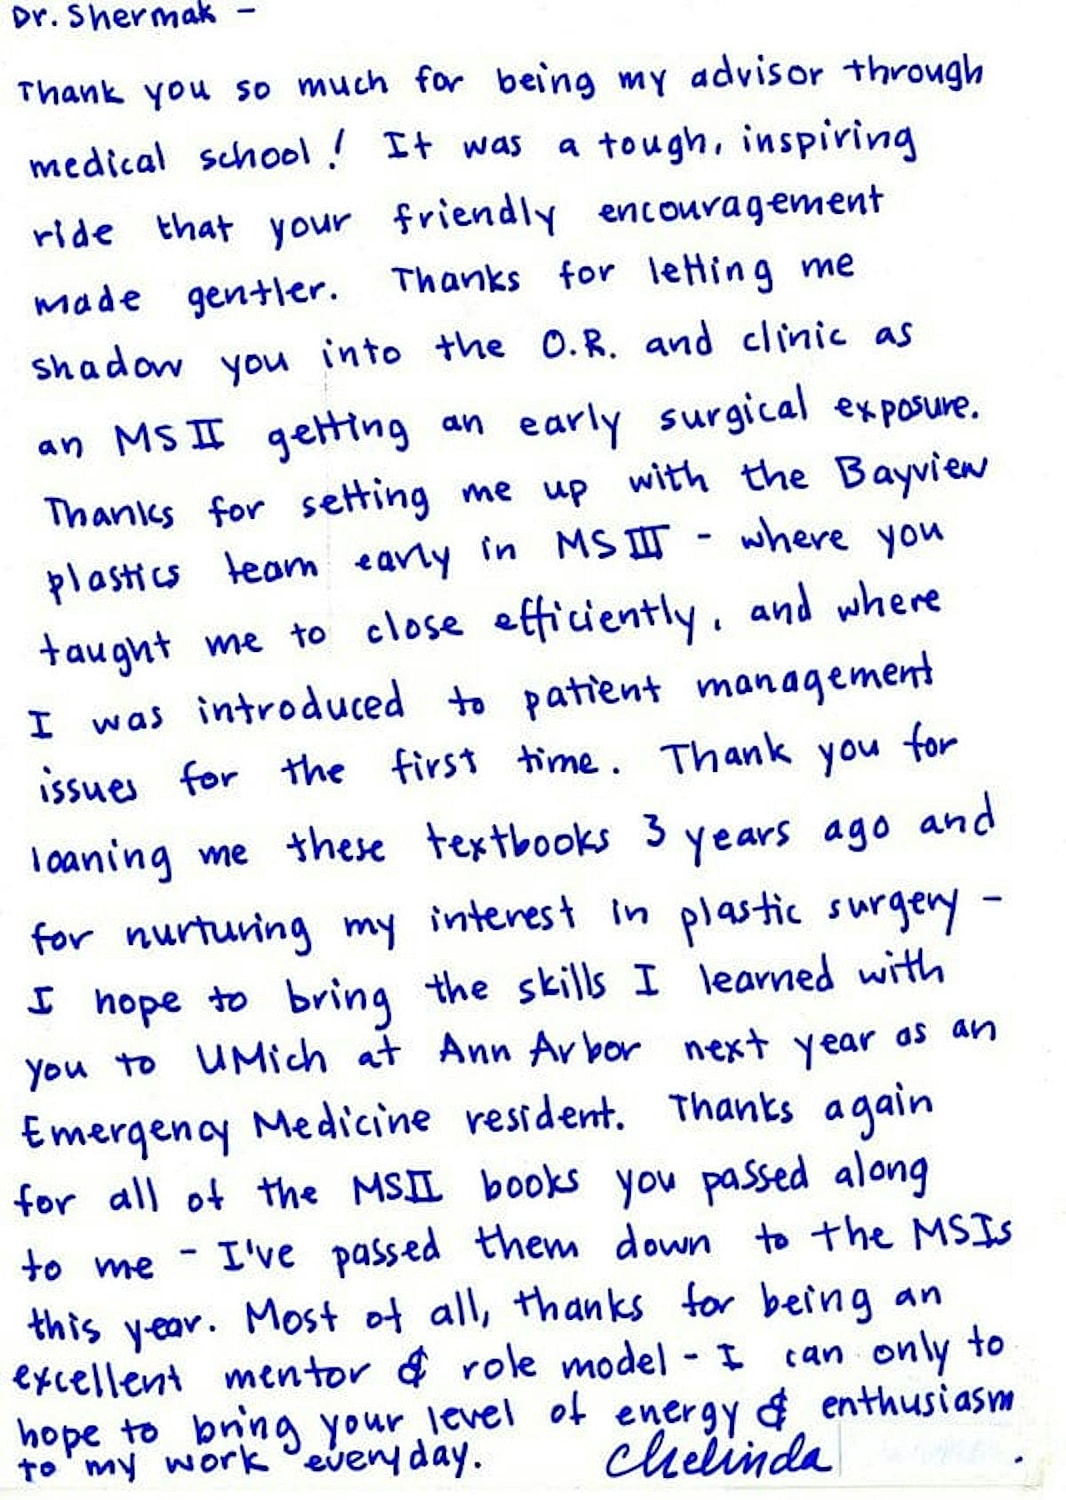 Dr. Shermak -
Thank you so much for being my advisor through
medical school! It was a tough, inspiring
ride that your friendly encouragement
made gentler. Thanks for letting me
shadow you into the O.R. and clinic as
an MS II getting an early surgical exposure.
Thanks for setting me up with the Bayview
plastics team early in MS III - where you
taught me to close efficiently, and where
I was introduced to patient management
issues for the first time. Thank you for
loaning me these textbooks 3 years ago and
for nurturing my interest in plastic surgery -
I hope to bring the skills I learned with
you to UMich at Ann Arbor next year as an
Emergency Medicine resident. Thanks again
for all of the MSII books you passed along
to me - I've passed them down to the MSIs
this year. Most of all, thanks for being an
excellent mentor & role model - I can only to
hope to bring your level of energy & enthusiasm
to my work everyday. Chelinda